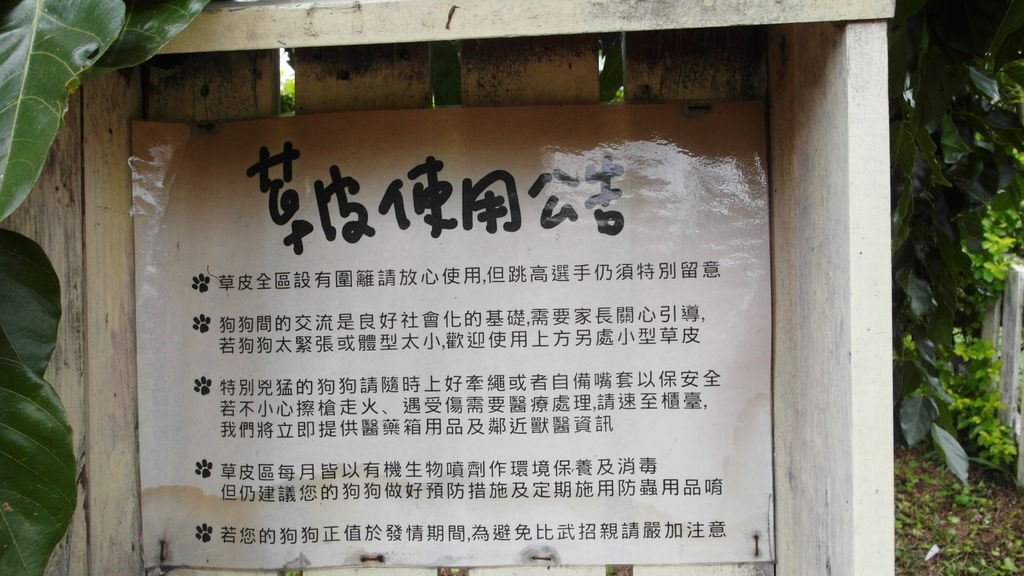 草皮使用公告
草皮全區設有圍籬請放心使用,但跳高選手仍須特別留意
狗狗間的交流是良好社會化的基礎,需要家長關心引導,
若狗狗太緊張或體型太小,歡迎使用上方另處小型草皮
特別兇猛的狗狗請隨時上好牽繩或者自備嘴套以保安全
若不小心擦槍走火、遇受傷需要醫療處理,請速至櫃臺,
我們將立即提供醫藥箱用品及鄰近獸醫資訊
草皮區每月皆以有機生物噴劑作環境保養及消毒
但仍建議您的狗狗做好預防措施及定期施用防蟲用品唷
若您的狗狗正值於發情期間,為避免比武招親請嚴加注意